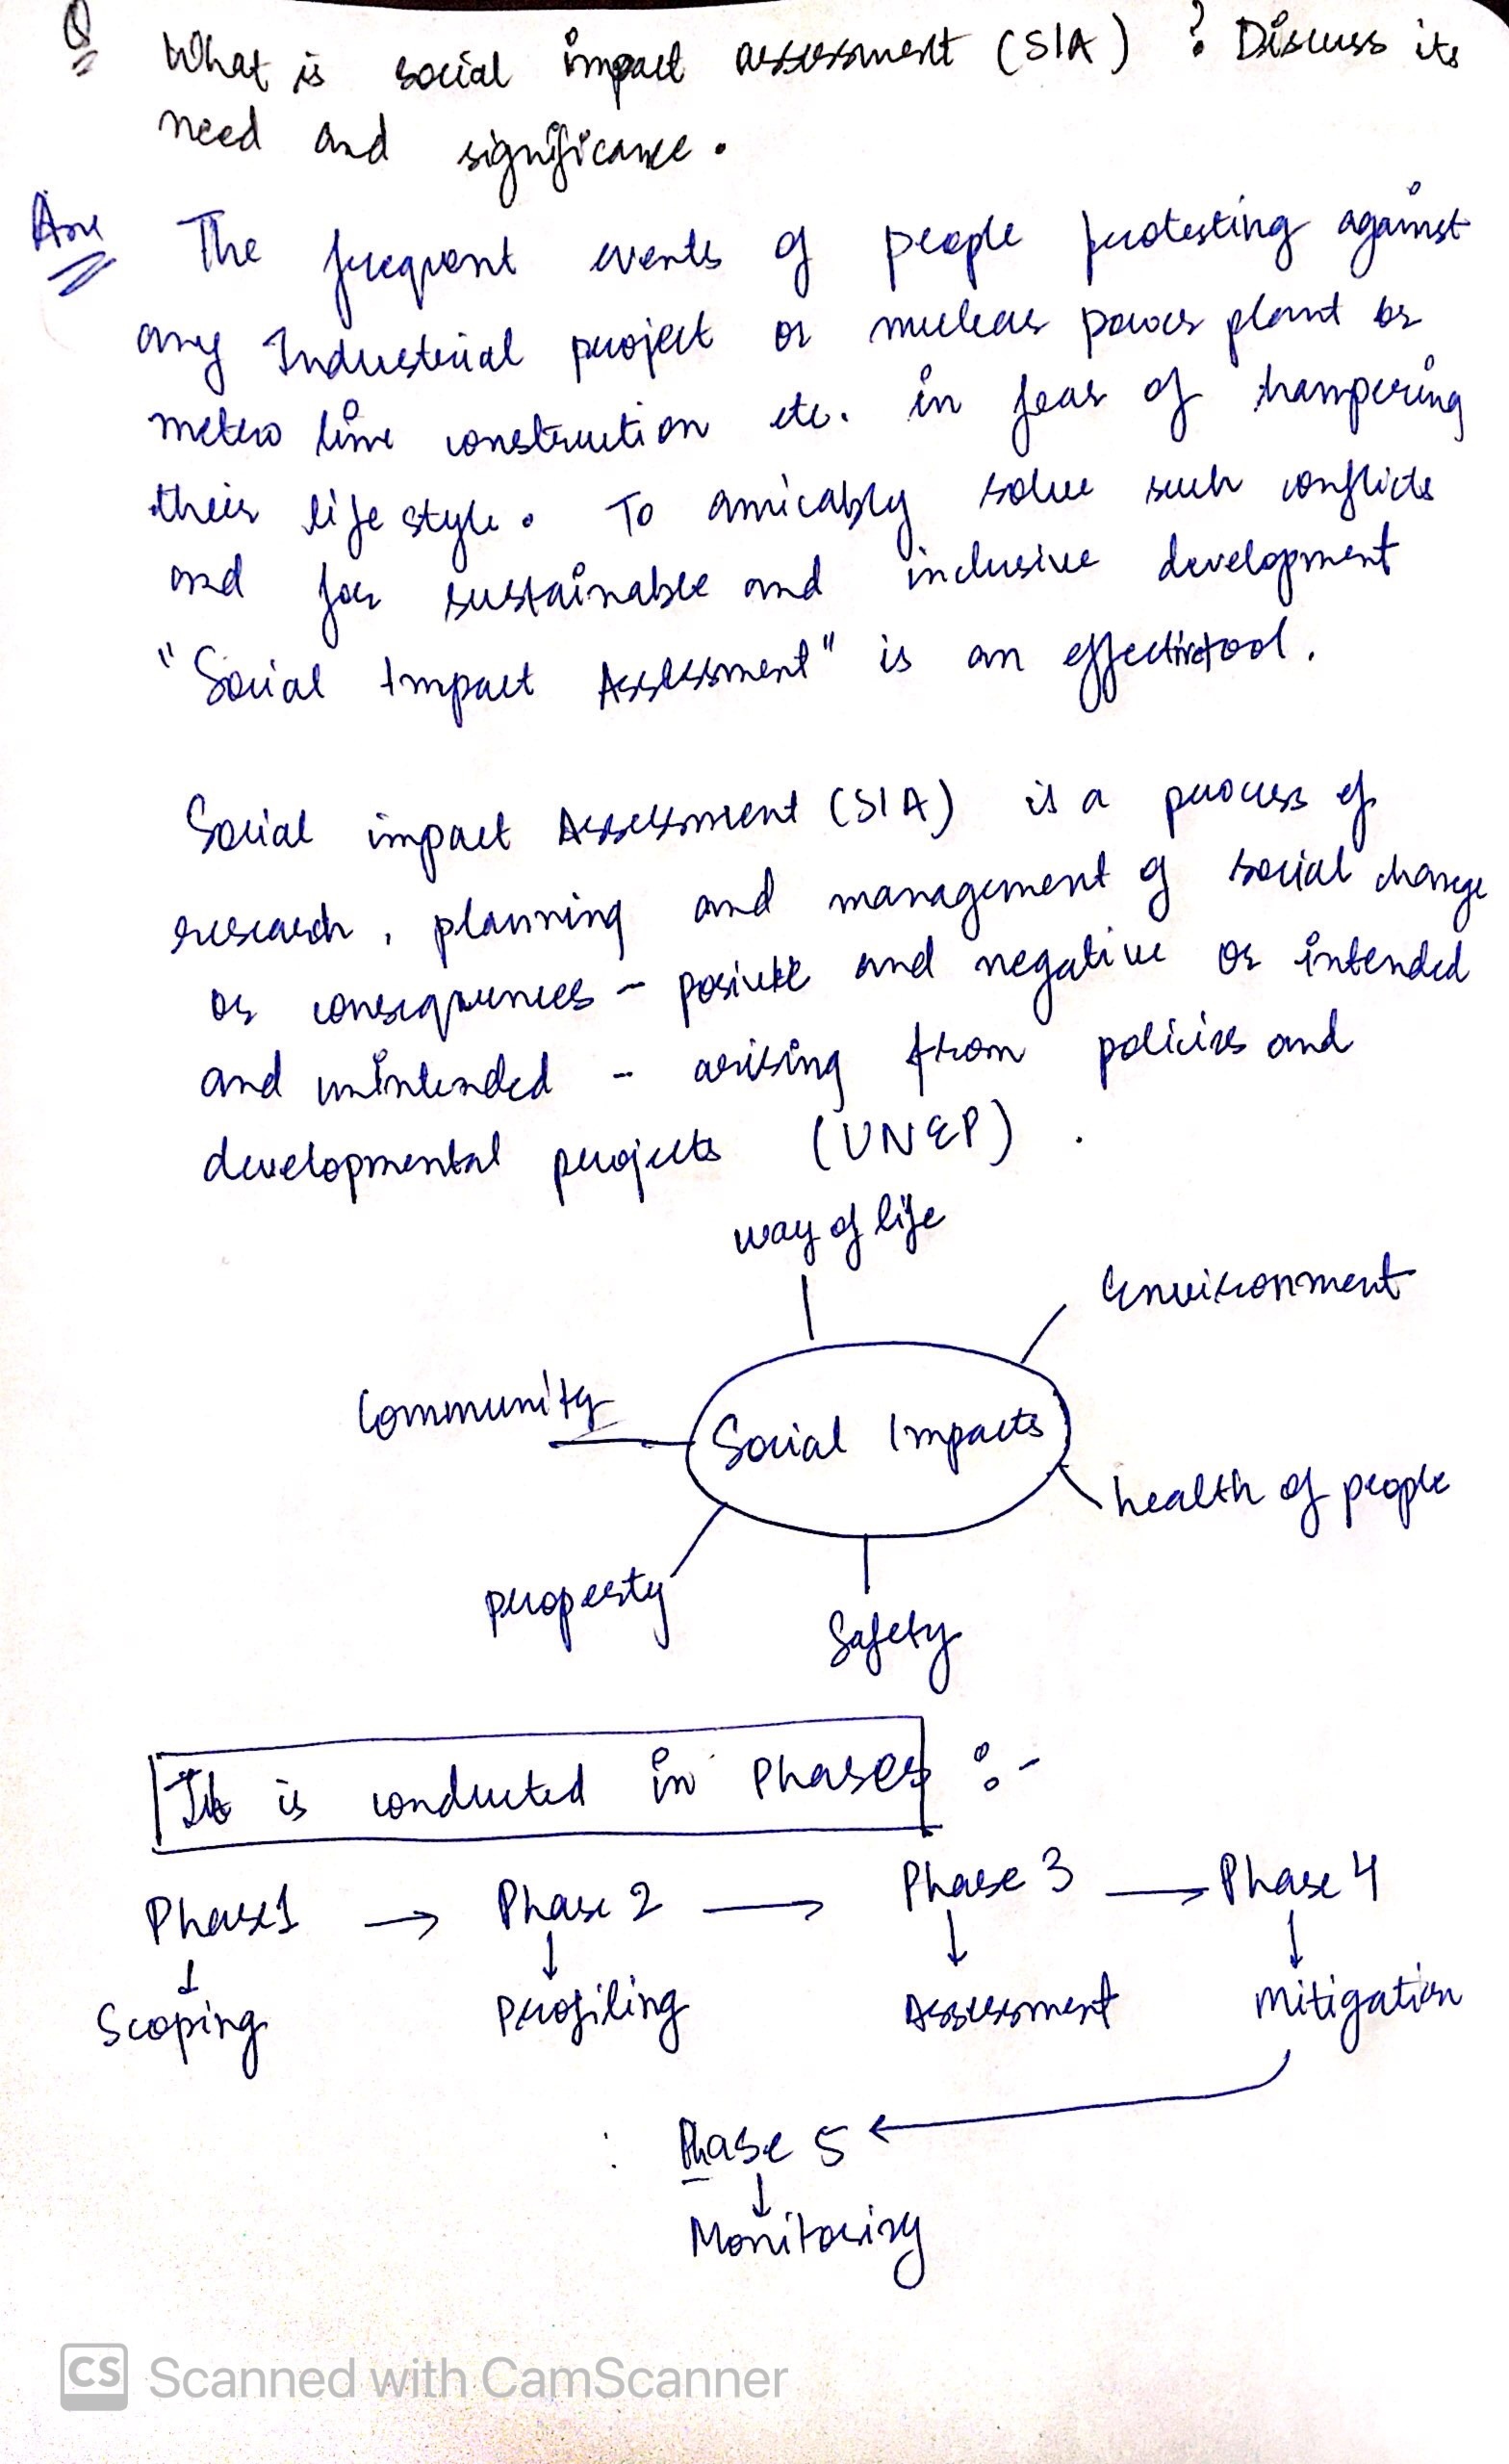 Q What is social impact assessment (SIA) ? Discuss its
need and significance.
Ans The frequent events of people protesting against
any Industrial project or nuclear power plant or
metro line construction etc. in fear of hampering
their life style. To amicably solve such conflicts
and for sustainable and inclusive development
"Social Impact Assessment" is an effective tool.
Social impact Assessment (SIA) is a process of
research, planning and management of social change
or consequences - positive and negative or intended
and unintended - arising from policies and
developmental projects (UNEP).
way of life
Environment
Community
Social Impacts
health of people
property
Safety
It is conducted in Phases :-
Phase 1 → Phase 2 → Phase 3 → Phase 4
Scoping Profiling Assessment Mitigation
Phase 5
Monitoring
CS Scanned with CamScanner